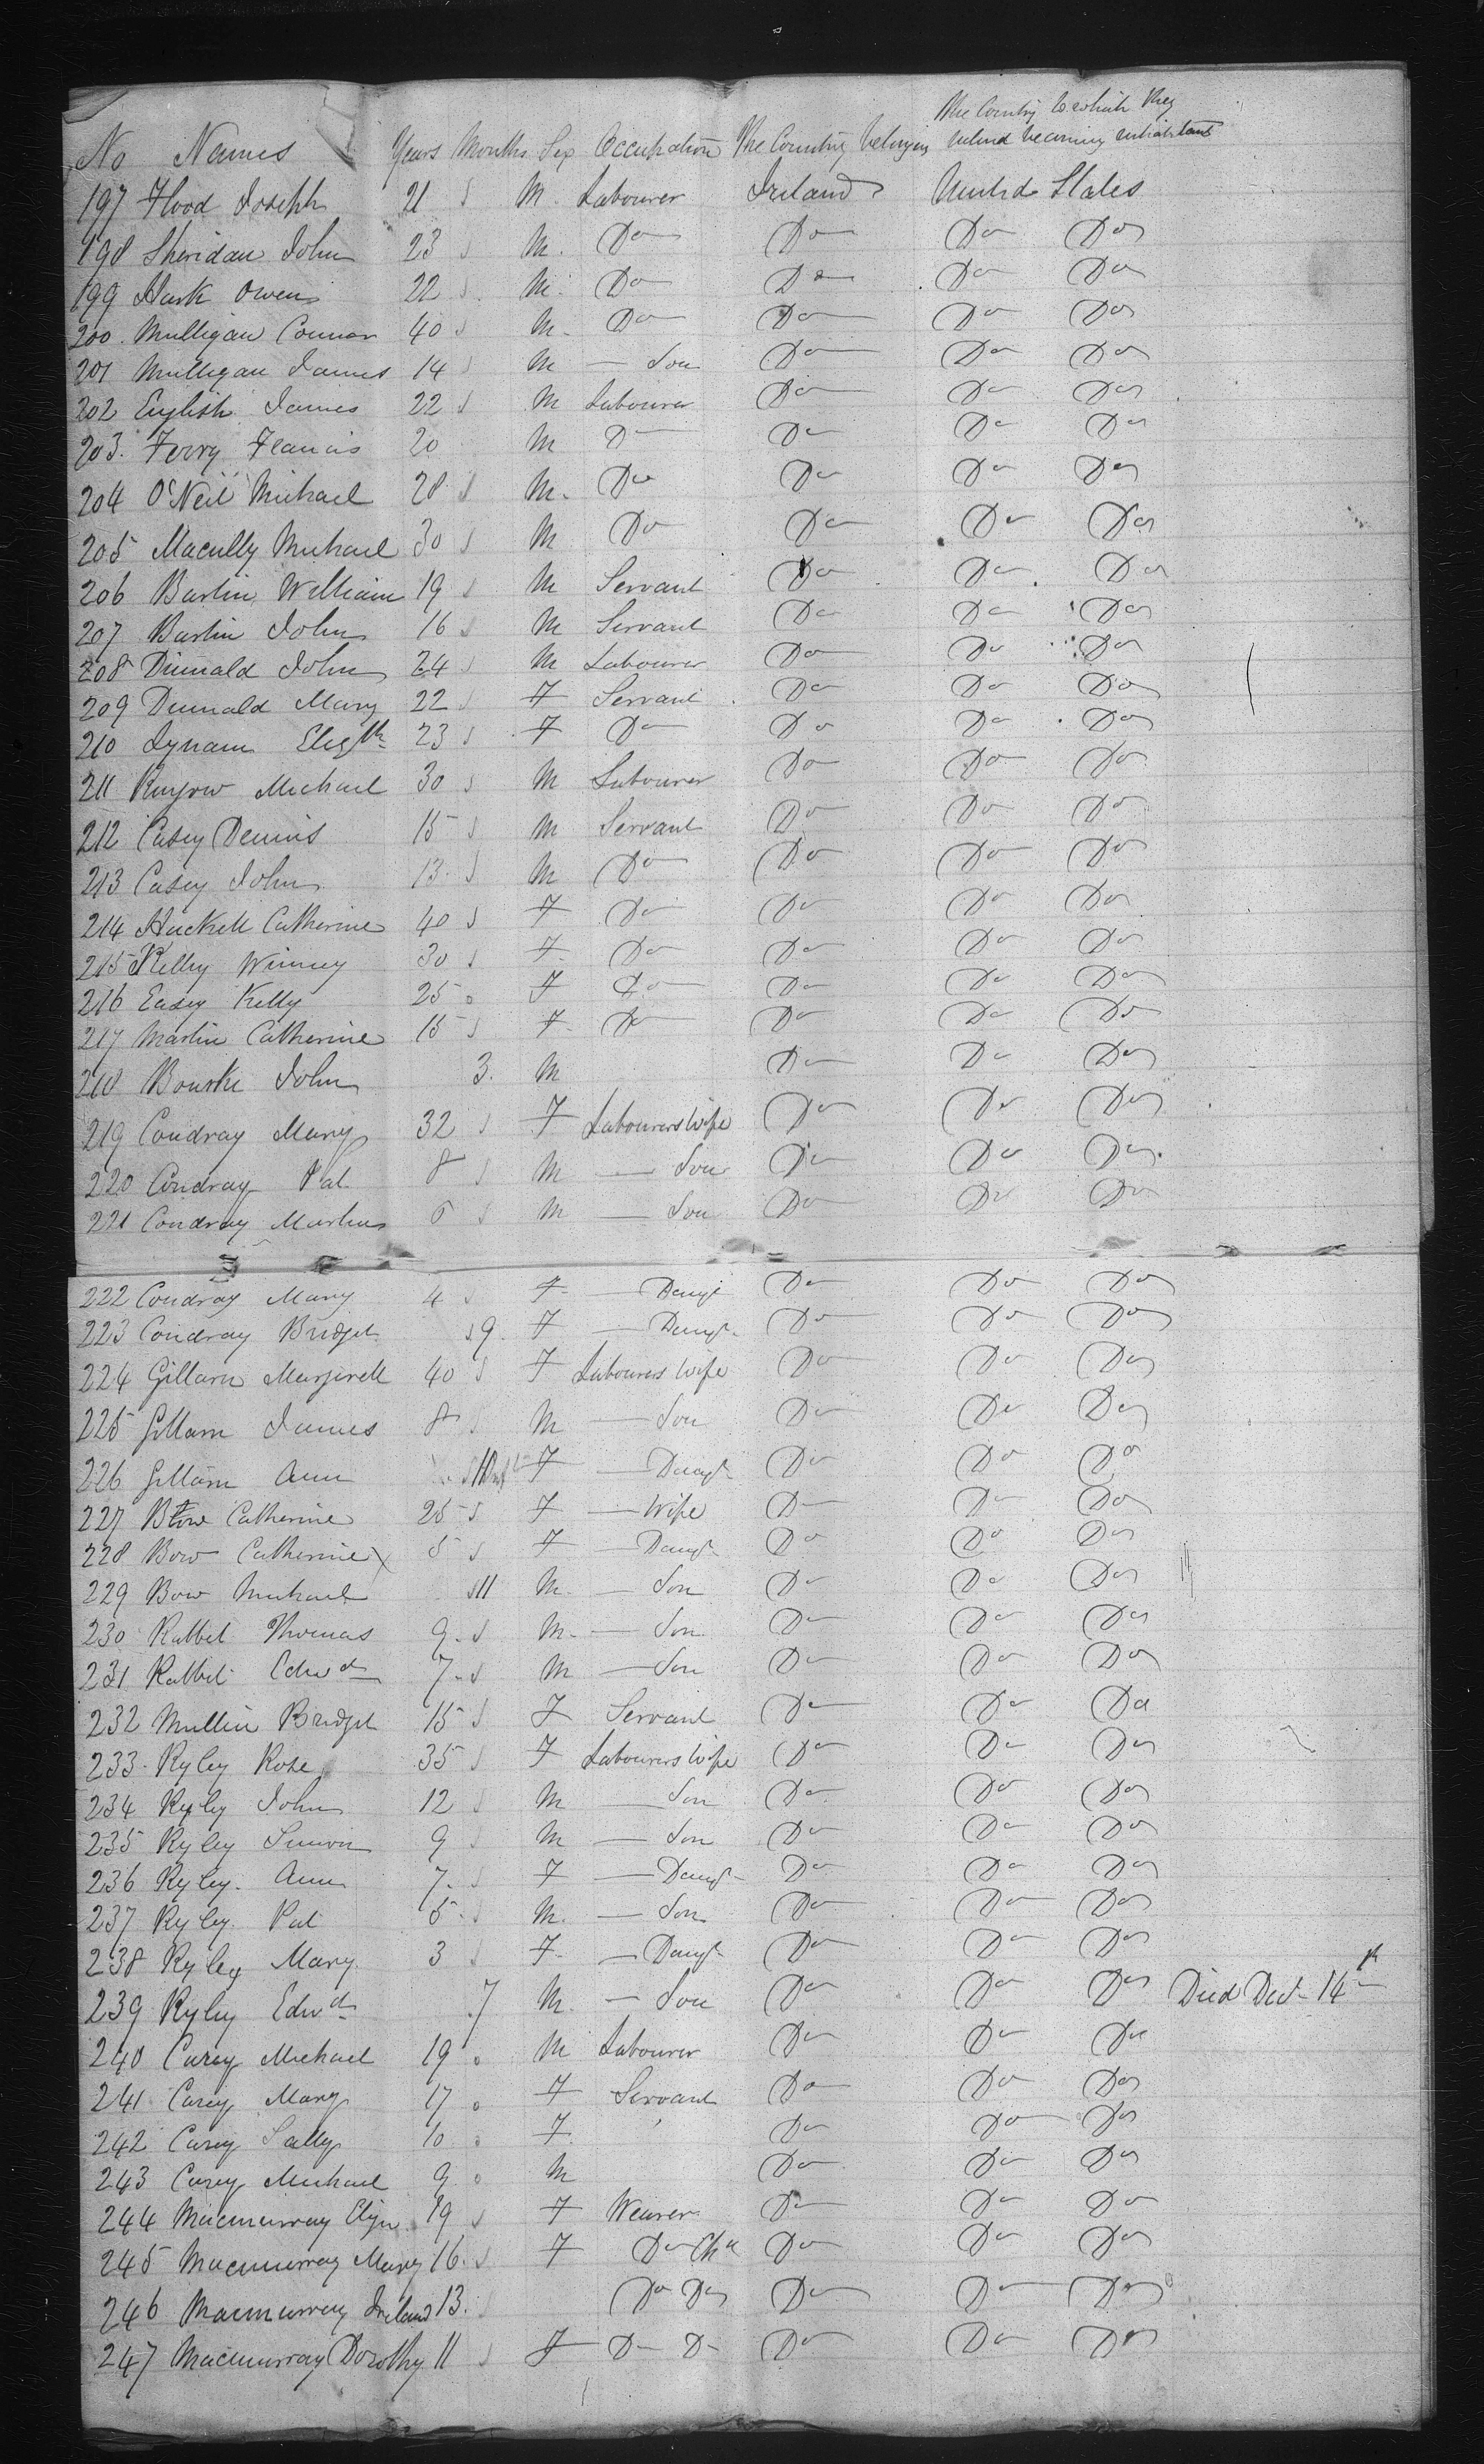 The Country to which they
No Names Years Months Sex Occupation The Country belonging intend becoming inhabitants
197 Flood Joseph 21 M. Labourer Ireland United States
198 Sheridan John 23 M. Do Do Do Do
199 Hask Owen 22 M. Do Do Do Do
200. Mulligan Connor 40 M. Do Do Do Do
201 Mulligan James 14 M — Son Do Do Do
202 English James 22 M Labourer Do Do Do
203. Ferry Francis 20 M Do Do Do Do
204 O'Neil Michael 28 M. Do Do Do Do
205 Macully Michael 30 M Do Do Do Do
206 Bartin William 19 M Servant Do Do Do
207 Bartin John 16 M Servant Do Do Do
208 John 24 M Labourer Do Do Do
209 Mary 22 F Servant Do Do Do
210 Lynam Elizth 23 F Do Do Do Do
211 Michael 30 M Labourer Do Do Do
212 Casey Dennis 15 M Servant Do Do Do
213 Casey John 13 M Do Do Do Do
214 Catherine 40 F Do Do Do Do
215 Kelley Winney 30 F Do Do Do Do
216 Easey Kelly 25 F Do Do Do Do
217 Martin Catherine 15 F Do Do Do Do
218 Bourke John 3. M Do Do Do
219 Condray Mary 32 F Labourers Wife Do Do Do
220 Condray Pat 8 M — Son Do Do Do
221 Condray Martin 6 M — Son Do Do Do
222 Condray Mary 4 F — Daugt Do Do Do
223 Condray Bridget 9. F — Daugt Do Do Do
224 Gillarn Margirett 40 F Labourers Wife Do Do Do
225 Gillarn James 8 M — Son Do Do Do
226 Gillarn Ann F — Daugt Do Do Do
227 Catherine 25 F — Wife Do Do Do
228 Bow Catherine 5 F — Daugt Do Do Do
229 Bow Michael 11 M. — Son Do Do Do
230 Rabbit Thomas 9 M. — Son Do Do Do
231 Rabbit Edwd 7 M — Son Do Do Do
232 Mullin Bridget 15 F Servant Do Do Do
233. Ryley Rose 35 F Labourers Wife Do Do Do
234 Ryley John 12 M — Son Do Do Do
235 Ryley Simon 9 M — Son Do Do Do
236 Ryley. Ann 7 F — Daugt Do Do Do
237 Ryley Pat 5 M. — Son Do Do Do
238 Ryley Mary 3 F — Daugt Do Do Do
239 Ryley Edwd 7 M. — Son Do Do Do Died Dect 14th
240 Carey Michael 19 M Labourer Do Do Do
241 Carey Mary 17 F Servant Do Do Do
242 Carey Sally 10 F. Do Do Do
243 Carey Michael 9 M Do Do Do
244 Macmurray 19 F Weaver Do Do Do
245 Macmurray Mary 16 F Do Do Do Do
246 Macmurray Ireland 13. Do Do Do Do Do
247 Macmurray Dorothy 11 F Do Do Do Do Do